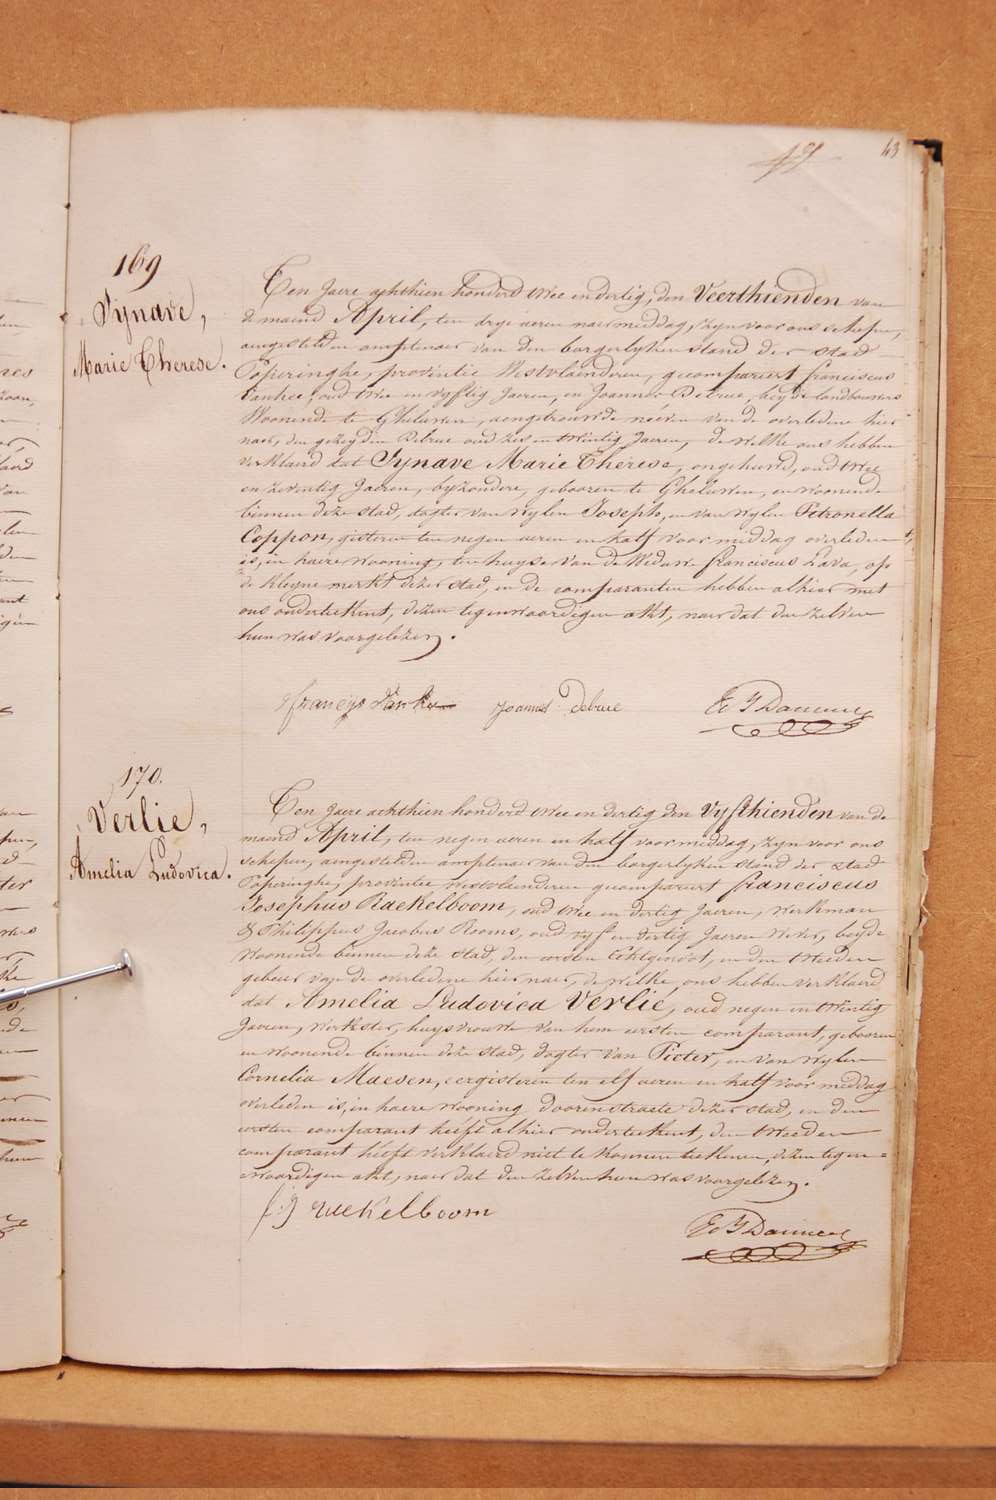 43
169
Synave,
Marie Therese.
Ten Jaere achthien honderd twee en dertig, den Veerthienden van
de maend April, ten drye ueren naermiddag, zyn voor ons schepen,
aengestelden amptenaer van den borgerlyken stand der stad
Poperinghe, provintie Westvlaenderen, gecompareert franciscus
Vanhee, oud twee en vyftig Jaeren, en Joannes Debrue, beyde landbouwers
Woonende te Gheluwen, aengetrouwde néven van de overledene hier
naer, den gezeyden Debrue oud zes en twintig Jaeren, de welke ons hebben
verklaerd dat Synave Marie Therese, ongehuwd, oud twee
en zeventig Jaeren, byzondere, gebooren te Gheluwen, en woonende
binnen deze stad, dogter van wylen Joseph, en van wylen Petronella
Coppon, gisteren ten negen ueren en half voormiddag overleden
is, in haere wooning, ten huyse van de Weduwe franciscus Lava, op
de kleyne merkt dezer stad, en de comparanten hebben alhier met
ons onderteekent, dezen tegenwoordigen akt, naer dat den zelven
hun was voorgelezen.
francys Joannes Debrue
170.
Verlie,
Amelia Ludovica.
Ten Jaere achthien honderd twee en dertig den Vyfthienden van de
maend April, ten negen ueren en half voormiddag, zyn voor ons
schepen, aengestelden amptenaer van den borgerlyken stand der stad
Poperinghe, provintie westvlaenderen gecompareert franciscus
Josephus Raekelboom, oud twee en dertig Jaeren, werkman
& Philippus Jacobus Rooms, oud vyf en dertig Jaeren wever, beyde
woonende binnen deze stad, den eersten Echtgenoot, en den tweeden
gebeur van de overledene hier naer, de welke ons hebben verklaerd
dat Amelia Ludovica Verlie, oud negen en twintig
Jaeren, werkster, huysvrouwe van hem eersten comparant, gebooren
en woonende binnen deze stad, dogter van Pieter, en van wylen
Cornelia Maesen, eergisteren ten elf ueren en half voor middag
overleden is, in haere wooning Doornstraete dezer stad, en den
eersten comparant heéft alhier onderteekent, den tweeden
comparant heéft verklaerd niet te konnen teekenen, dezen tegen=
woordigen akt, naer dat den zelven hun was voorgelezen.
raekelboom